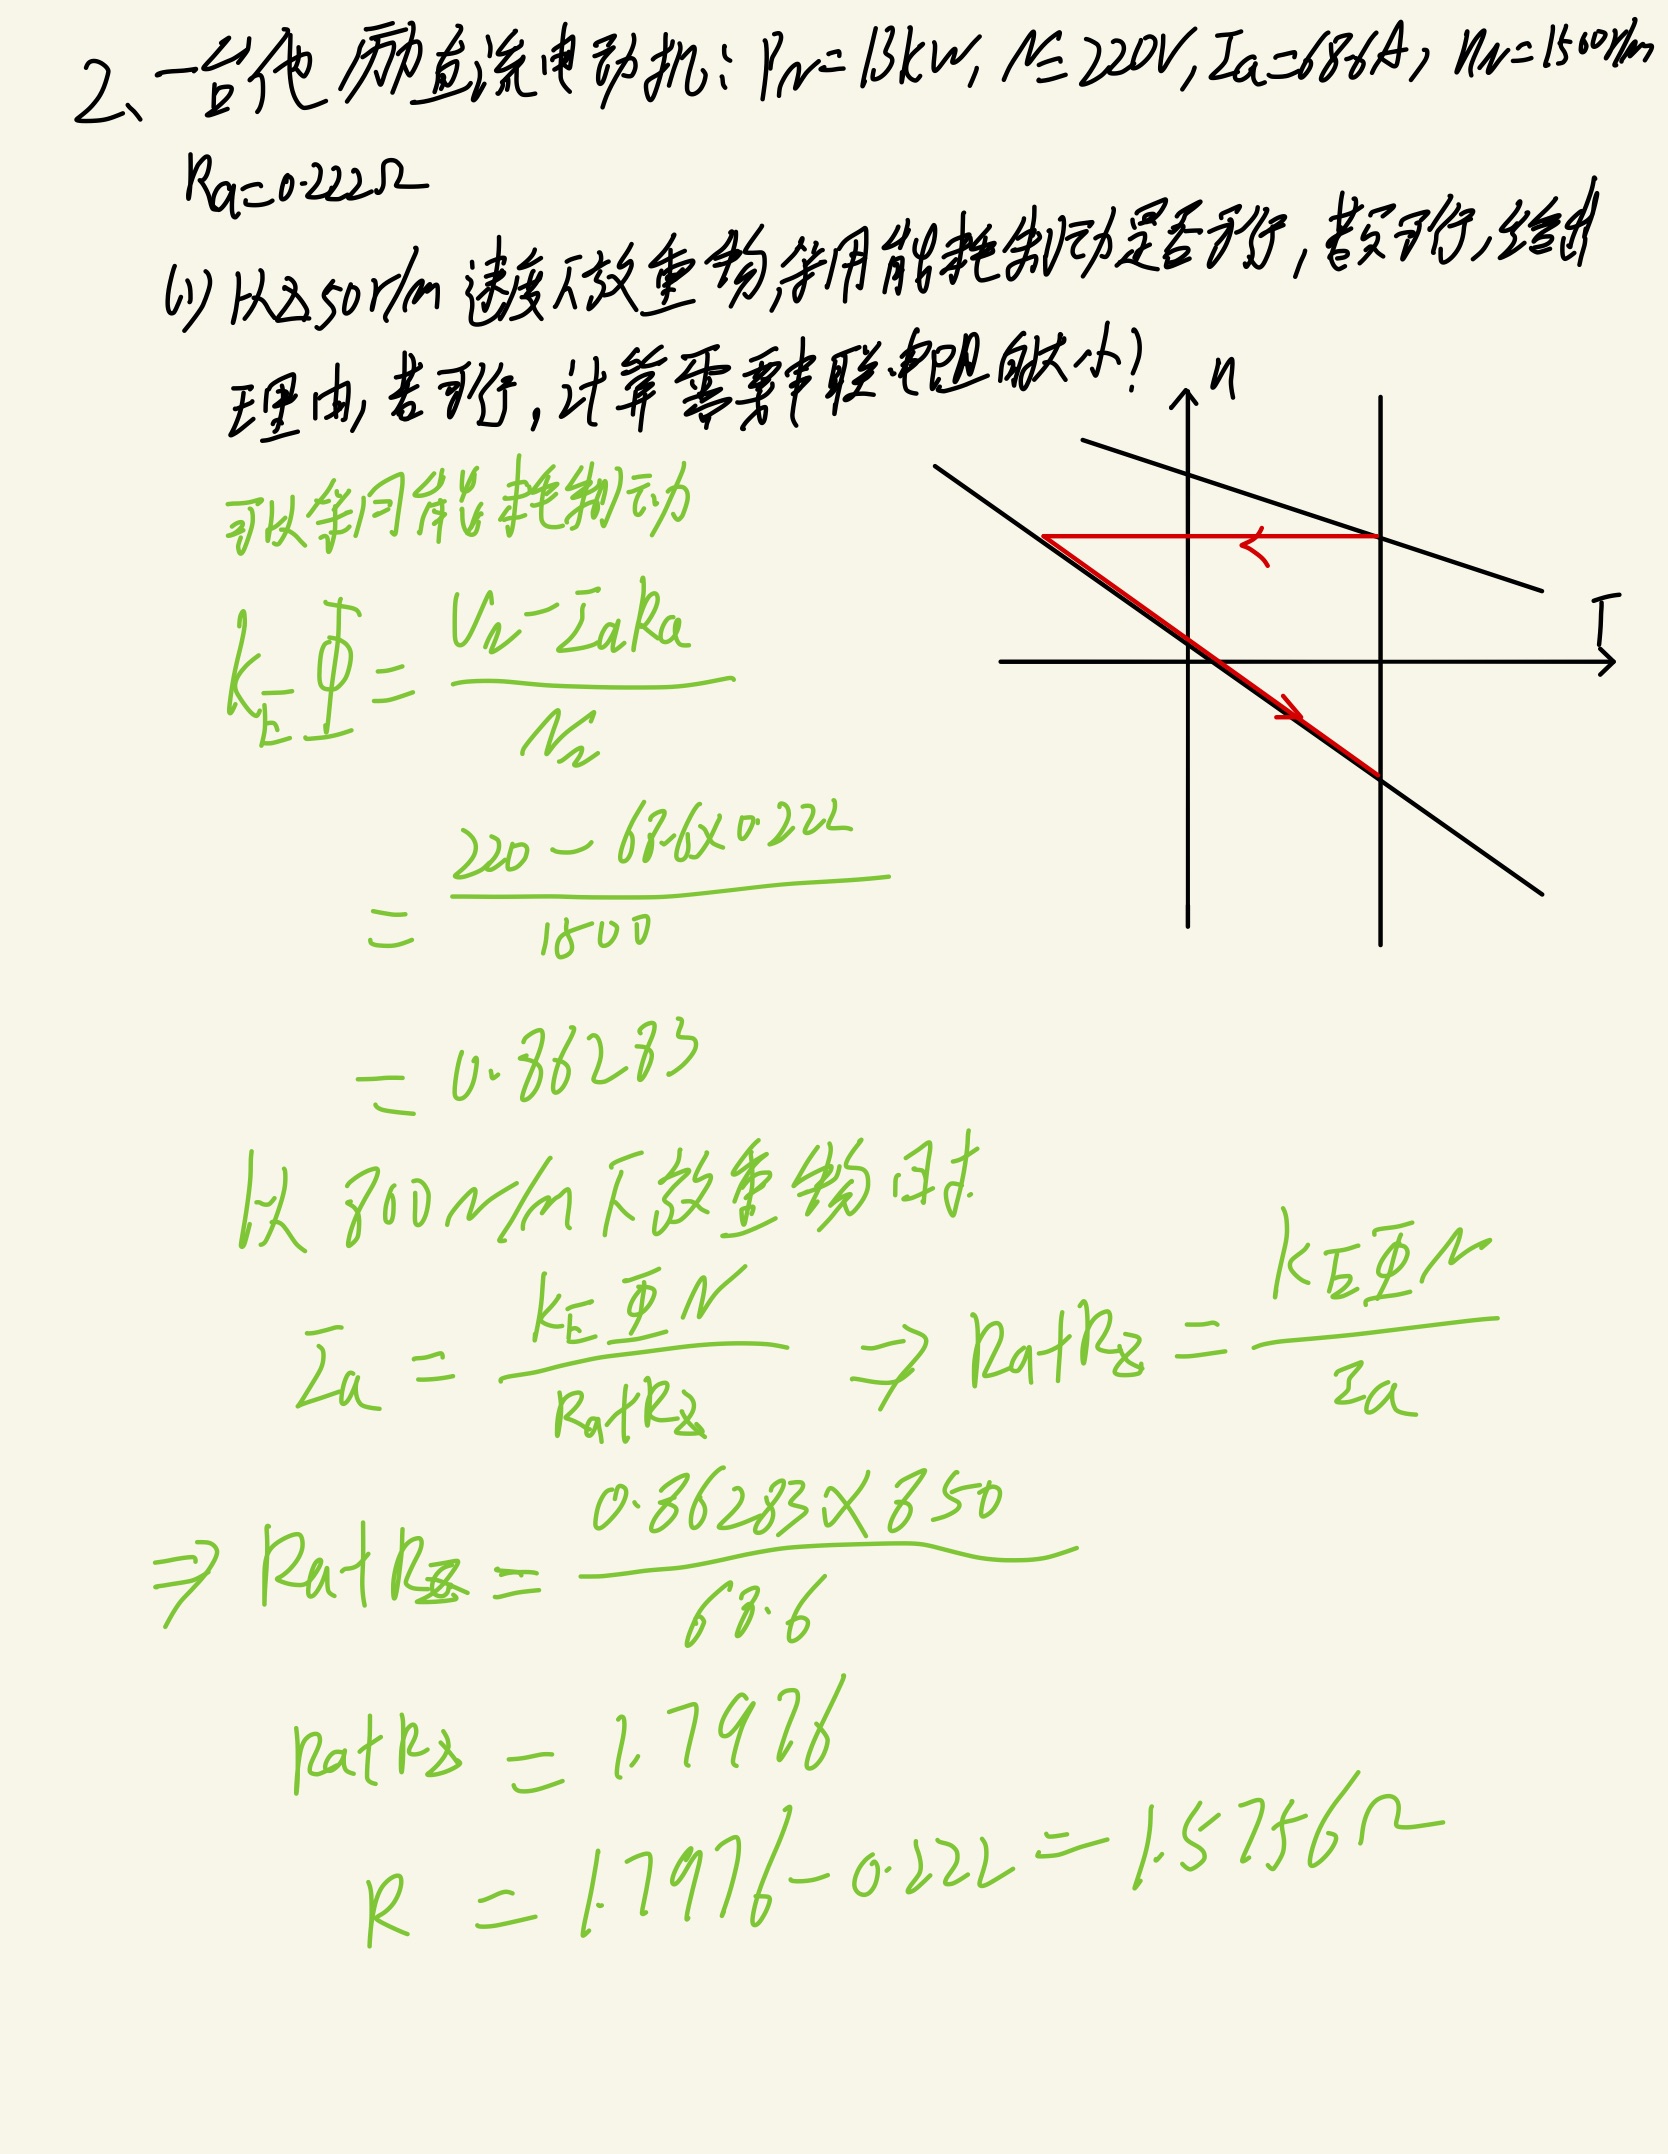 2、一台他励直流电动机: P_N=13kW, N=220V, Ia=68.6A, n_N=1500r/m
Ra=0.222Ω
(1) 以850r/m 速度下放重物,采用能耗制动是否可行,若不可行,给出
理由,若可行,计算需要串联电阻的大小?
n
I
可以采用能耗制动
K_EΦ = (U_N - IaRa) / N_N
= (220 - 68.6×0.222) / 1500
= 0.86283
以 800r/m 下放重物时
Ia = K_EΦN / (Ra+Rz) ⇒ Ra+Rz = K_EΦN / Ia
⇒ Ra+Rz = 0.86283×850 / 68.6
Ra+Rz = 1.7976
R = 1.7976 - 0.222 = 1.5756Ω